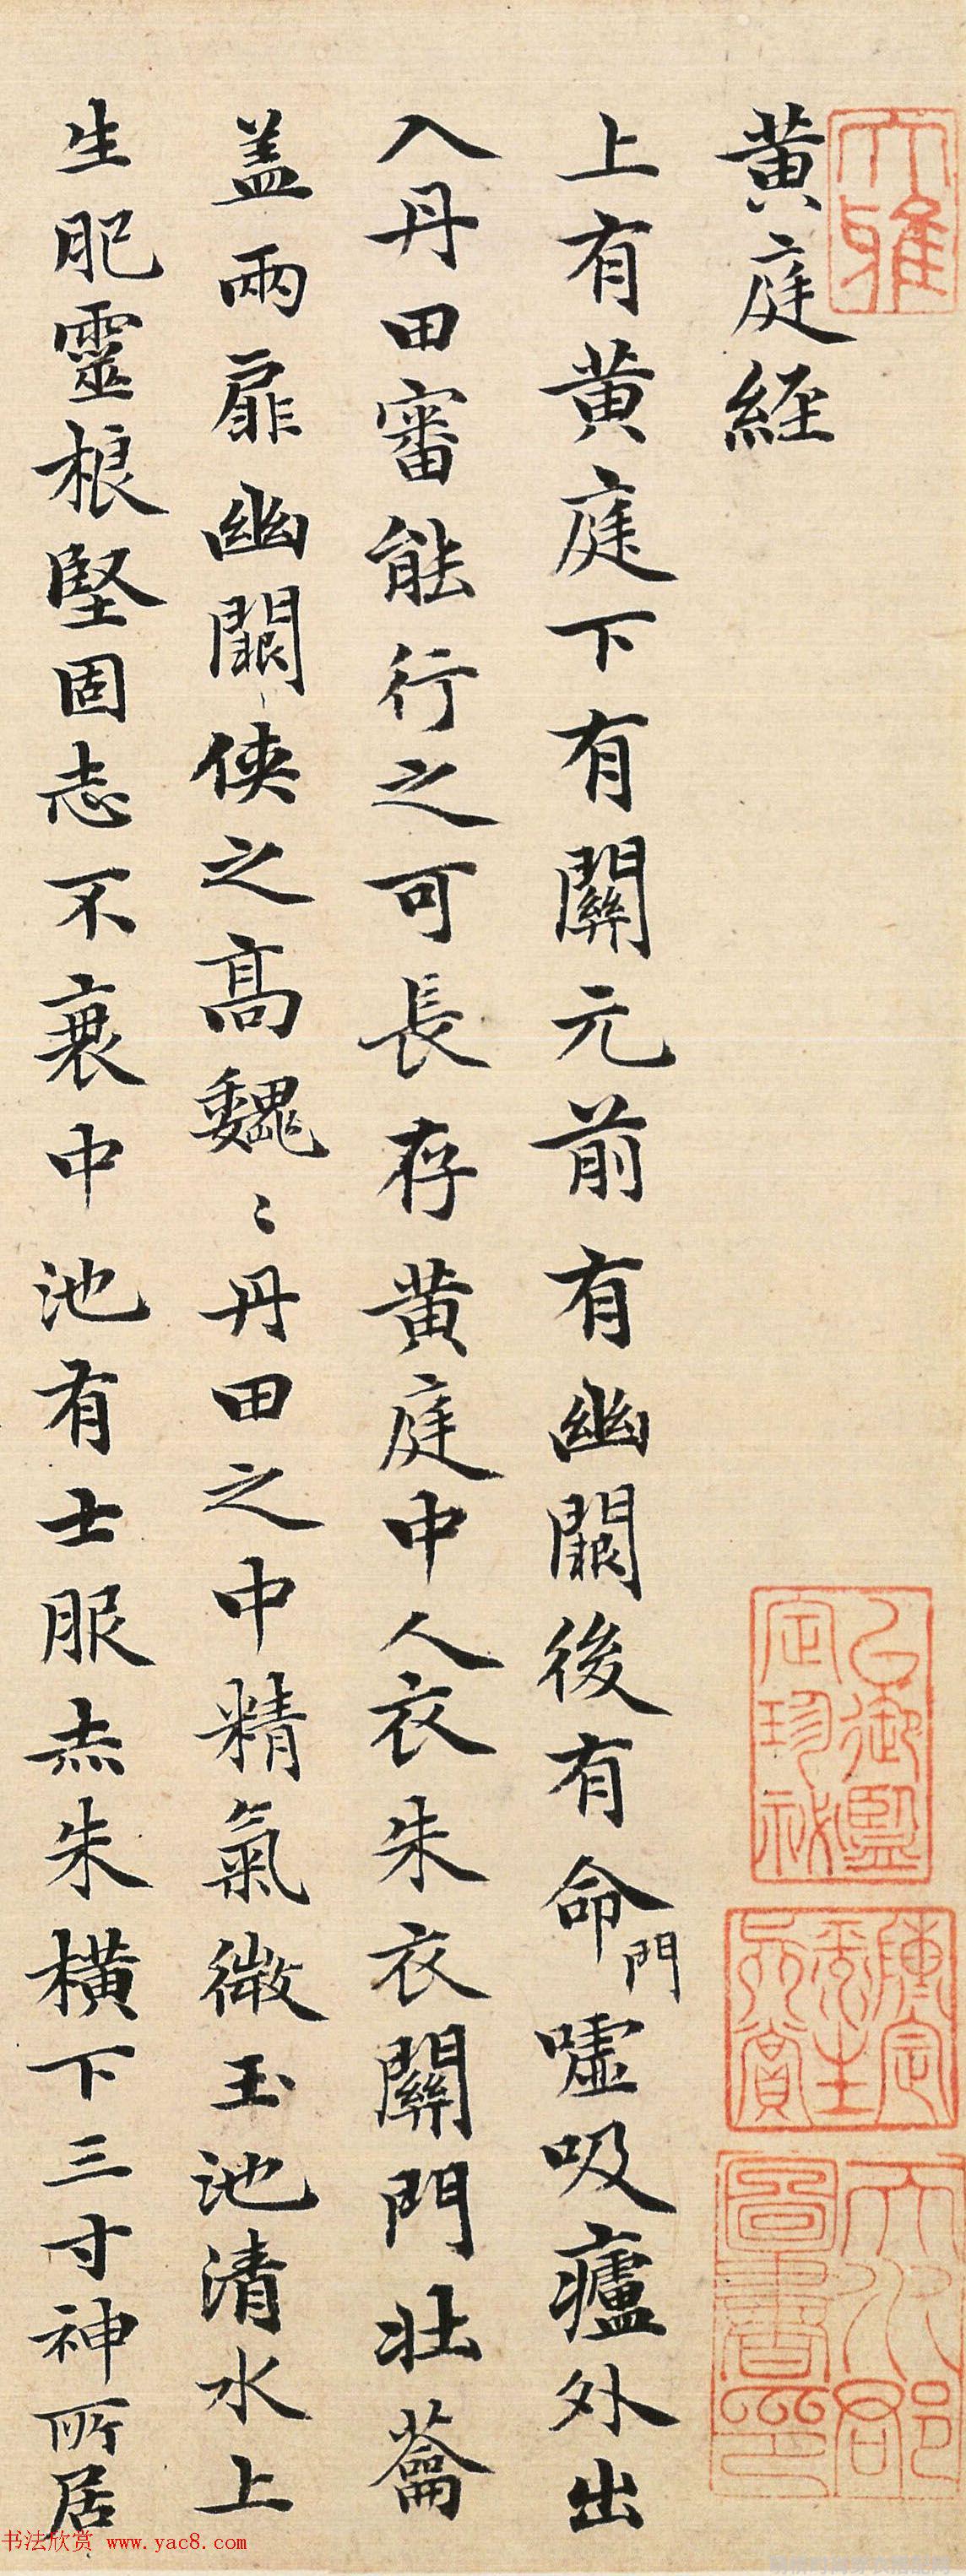 大雅
黃庭經
上有黃庭下有關元前有幽闕後有命門噓吸廬外出
入丹田審能行之可長存黃庭中人衣朱衣關門壯蘥
盖兩扉幽闕俠之高魏〻丹田之中精氣微玉池清水上
生肥靈根堅固志不衰中池有士服赤朱橫下三寸神所居
天水郡圖書印
书法欣赏 www.yac8.com